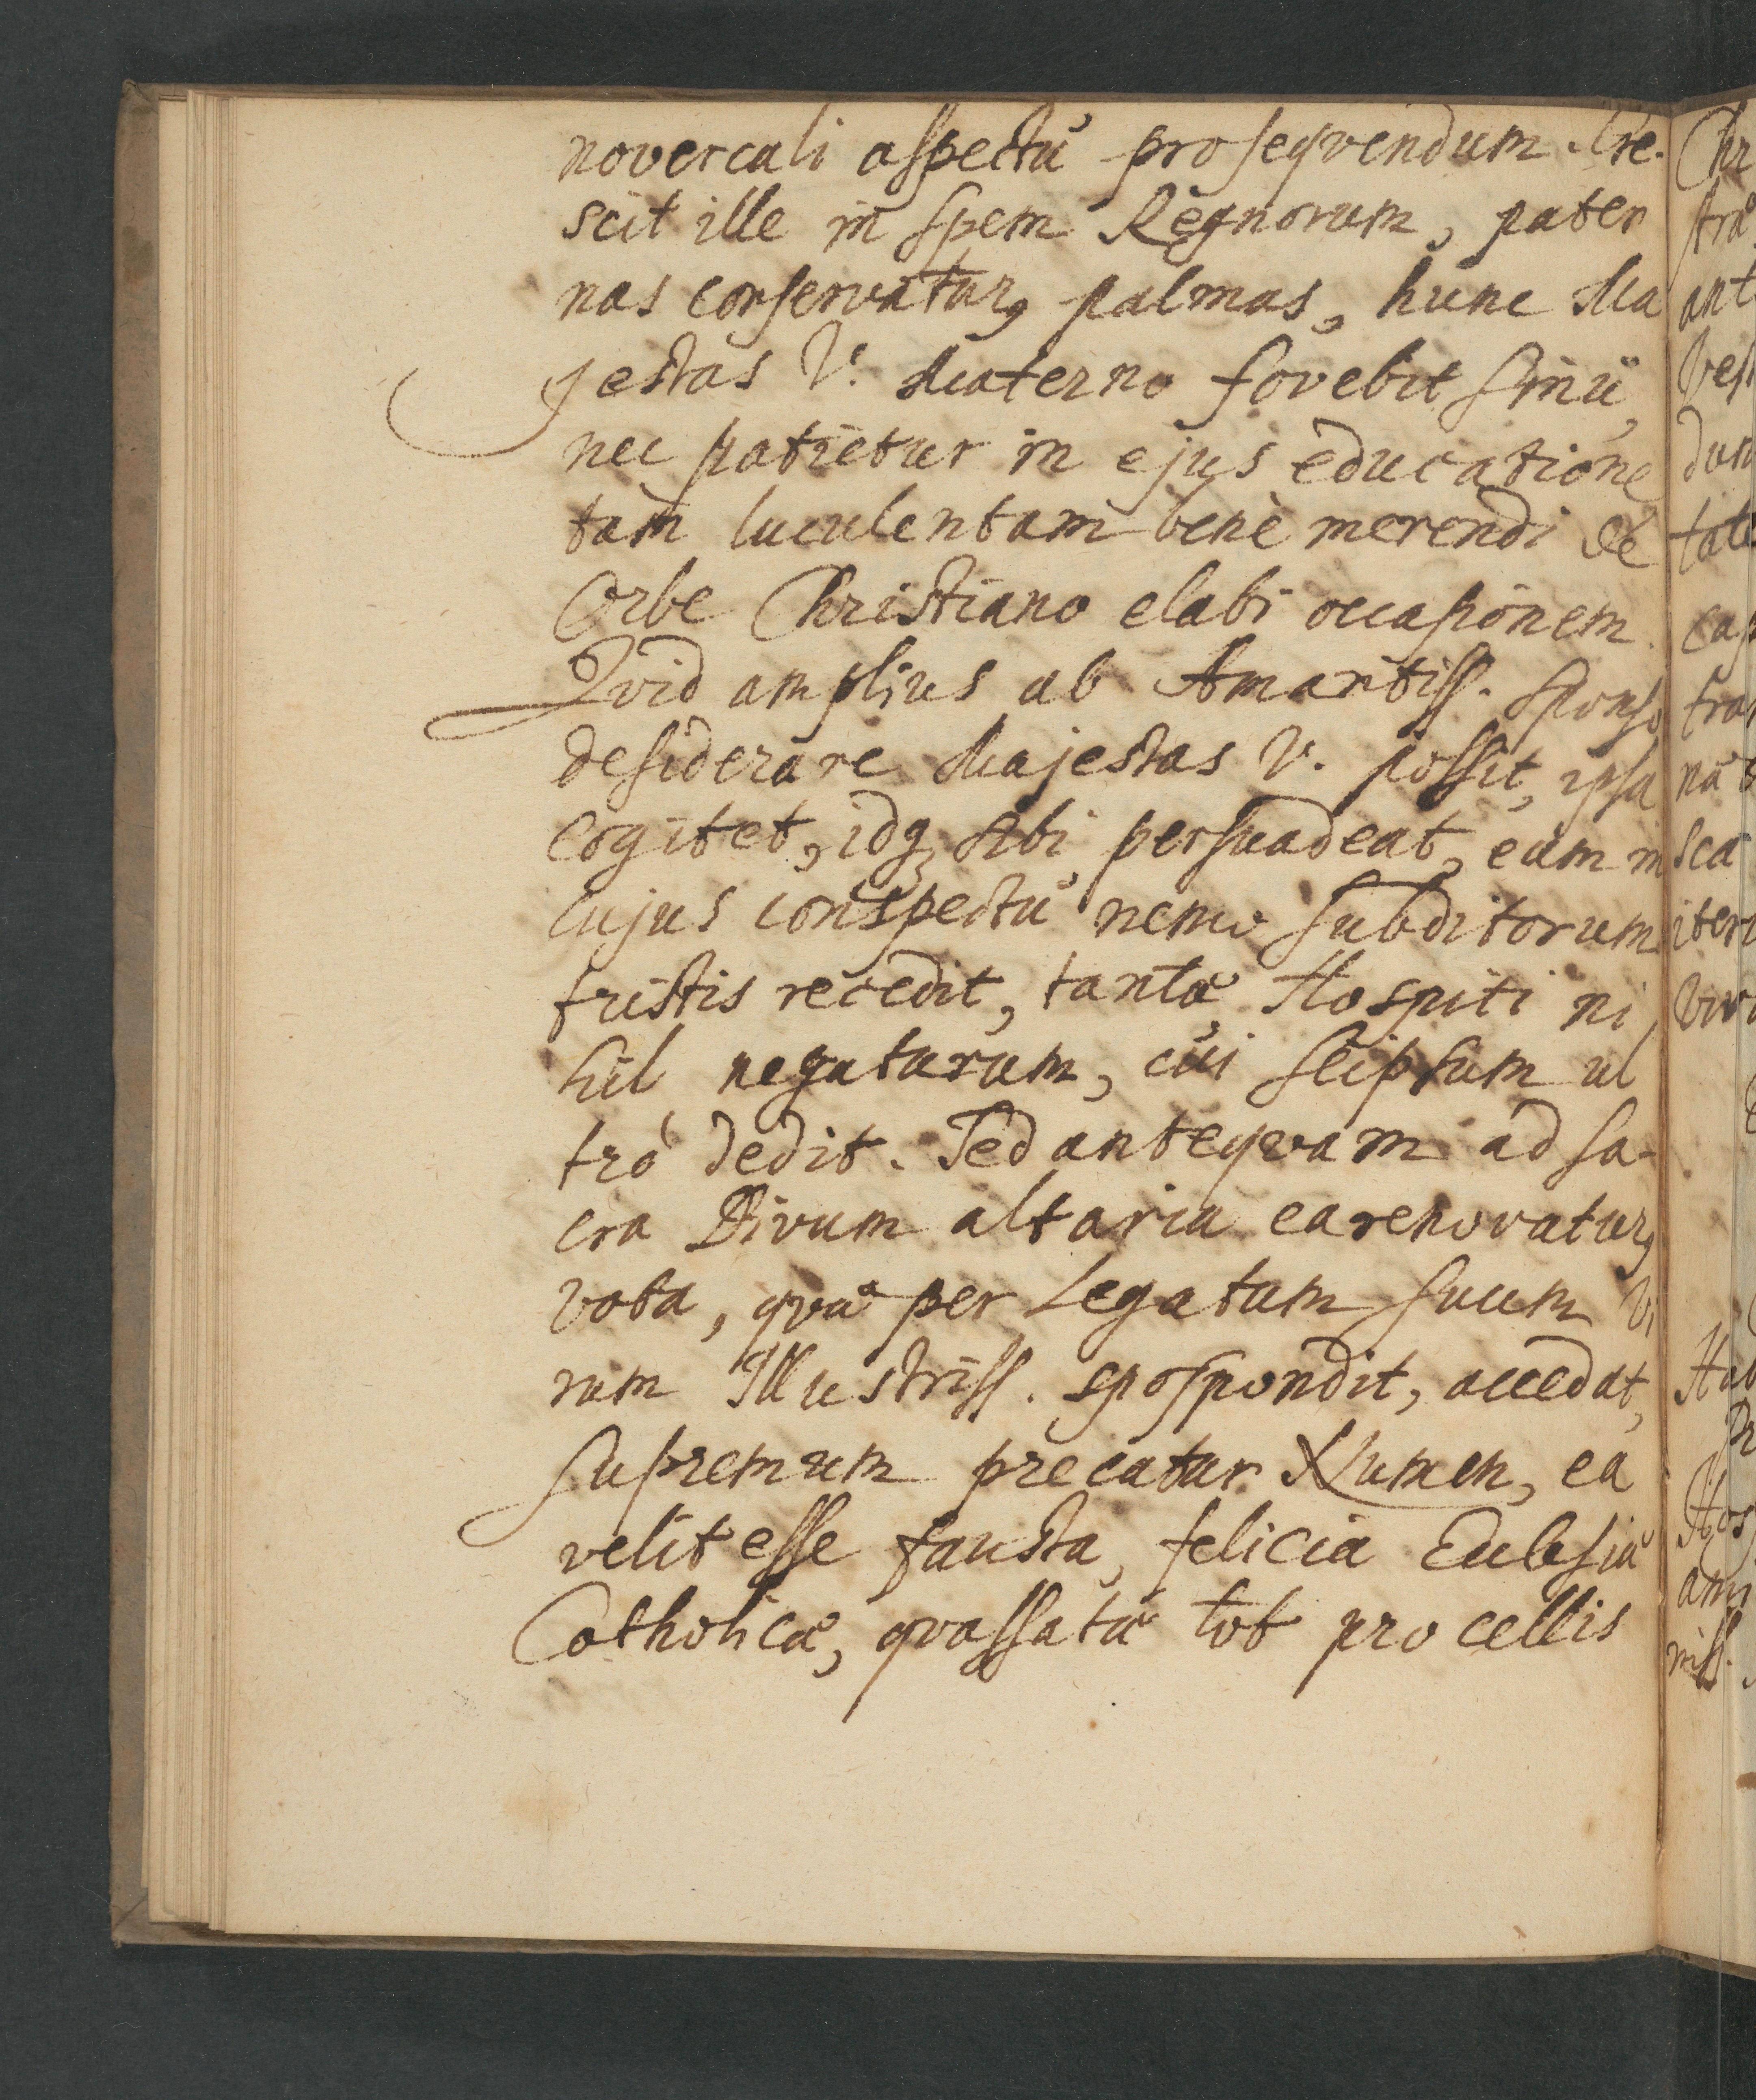 novercali aspectu prosequendum. Cre-
scit ille in spem Regnorum, pater
nas conservatur palmas, hunc Ma
jestas V. Materno fovebit sinu,
nec patietur in ejus educatione
tam luculentam bene merendi de
Orbe Christiano elabi occasionem.
Qvid amplius ab Amantiss. Sponso
desiderare Majestas V. possit, ipsa
cogitet, idq; sibi persuadeat, eum in
cujus conspectu nemo subditorum
tristis recedit, tantæ Hospiti ni
hil negaturum, cui seipsum ul
tró dedit. Sed anteqvam ad sa-
cra Divum altaria ea renovatur
vota, qvæ per Legatum suum Vi
rum Illustriss. spospondit, accedat,
supremum precatur Numen, ea
velit esse fausta, felicia Ecclesiæ
Catholicæ, qvassatæ tot procellis